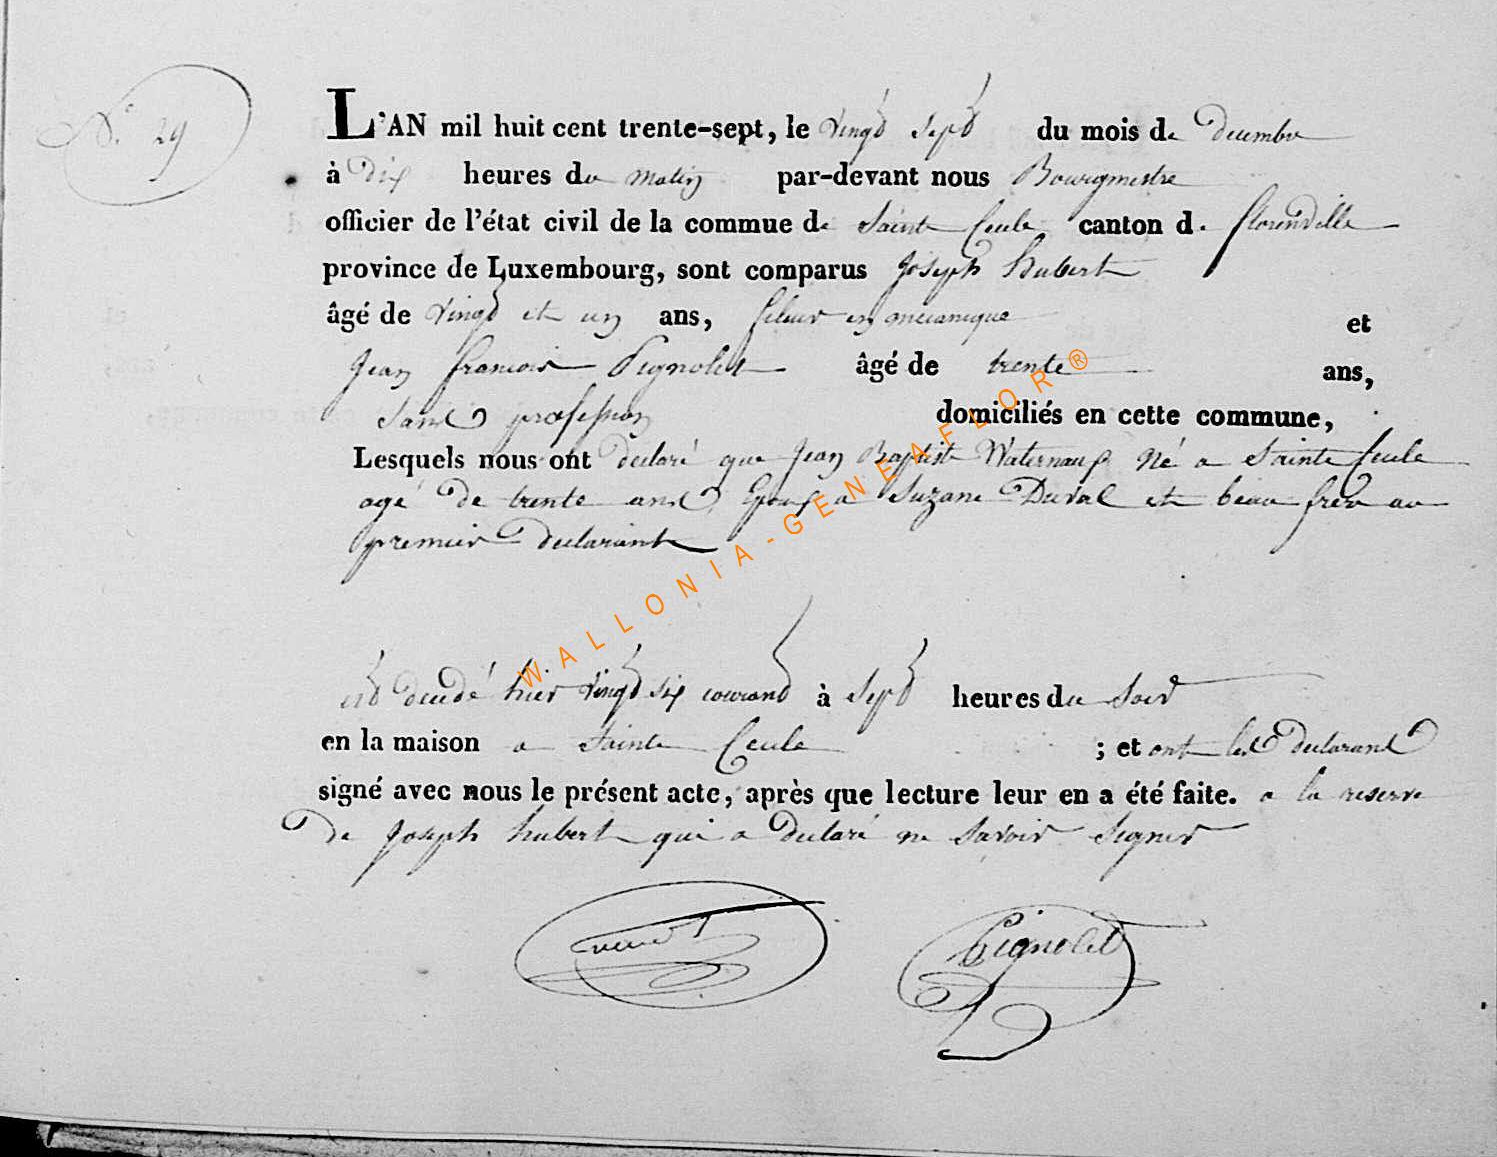 N.° 29
L'AN mil huit cent trente-sept, le vingt sept du mois de decembre
à dix heures du matin par-devant nous Bourgmestre
officier de l'état civil de la commue de Sainte Cecile canton d. florenville
province de Luxembourg, sont comparus Joseph hubert
âgé de vingt et un ans, fileur en mecanique et
Jean francois Pignolet âgé de trente ans,
sans profession domiciliés en cette commune,
Lesquels nous ont declaré que Jean Baptiste Waternaux Né a Sainte Cecile
agé de trente ans, Epoux a Suzane Duval et beau frere au
premier declarant
est decedé hier vingt six courant à sept heures du soir
en la maison a Sainte Cecile ; et ont les declarans
signé avec nous le présent acte, après que lecture leur en a été faite. a la reserve
de Joseph hubert qui a declaré ne savoir signer
Pignolet
WALLONIA-GENEAFLOR®